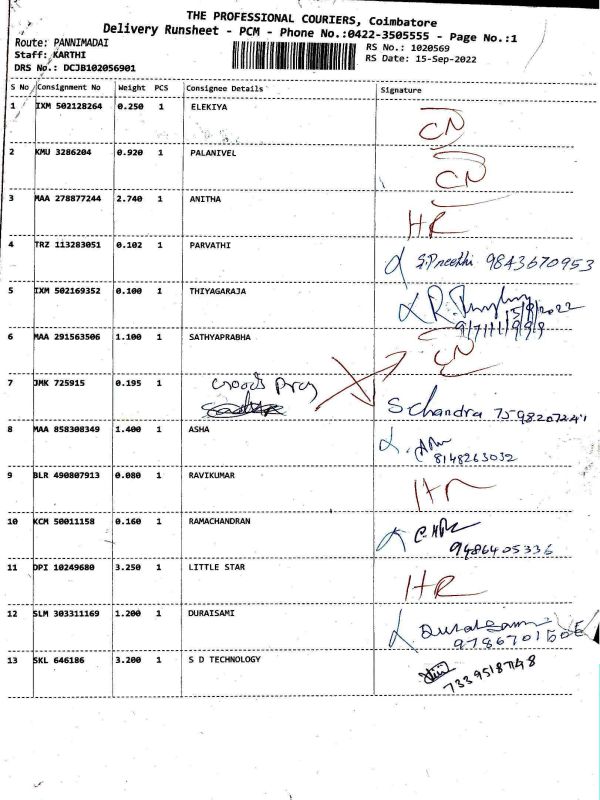 THE PROFESSIONAL COURIERS, Coimbatore
Delivery Runsheet - PCM - Phone No.:0422-3505555 - Page No.:1
Route: PANNIMADAI
Staff: KARTHI
DRS No.: DCJB102056901
RS No.: 1020569
RS Date: 15-Sep-2022
S No Consignment No Weight PCS Consignee Details Signature
1 IXM 502128264 0.250 1 ELEKIYA CN
2 KMU 3286204 0.920 1 PALANIVEL CN
3 MAA 278877244 2.740 1 ANITHA HR
4 TRZ 113283051 0.102 1 PARVATHI S.Preethi 9843670953
5 IXM 502169352 0.100 1 THIYAGARAJA
6 MAA 291563506 1.100 1 SATHYAPRABHA CN
7 JMK 725915 0.195 1 S Chandra
8 MAA 858308349 1.400 1 ASHA
8148263032
9 BLR 490807913 0.080 1 RAVIKUMAR
10 KCM 50011158 0.160 1 RAMACHANDRAN
9486405336
11 DPI 10249680 3.250 1 LITTLE STAR HR
12 SLM 303311169 1.200 1 DURAISAMI
13 SKL 646186 3.200 1 S D TECHNOLOGY